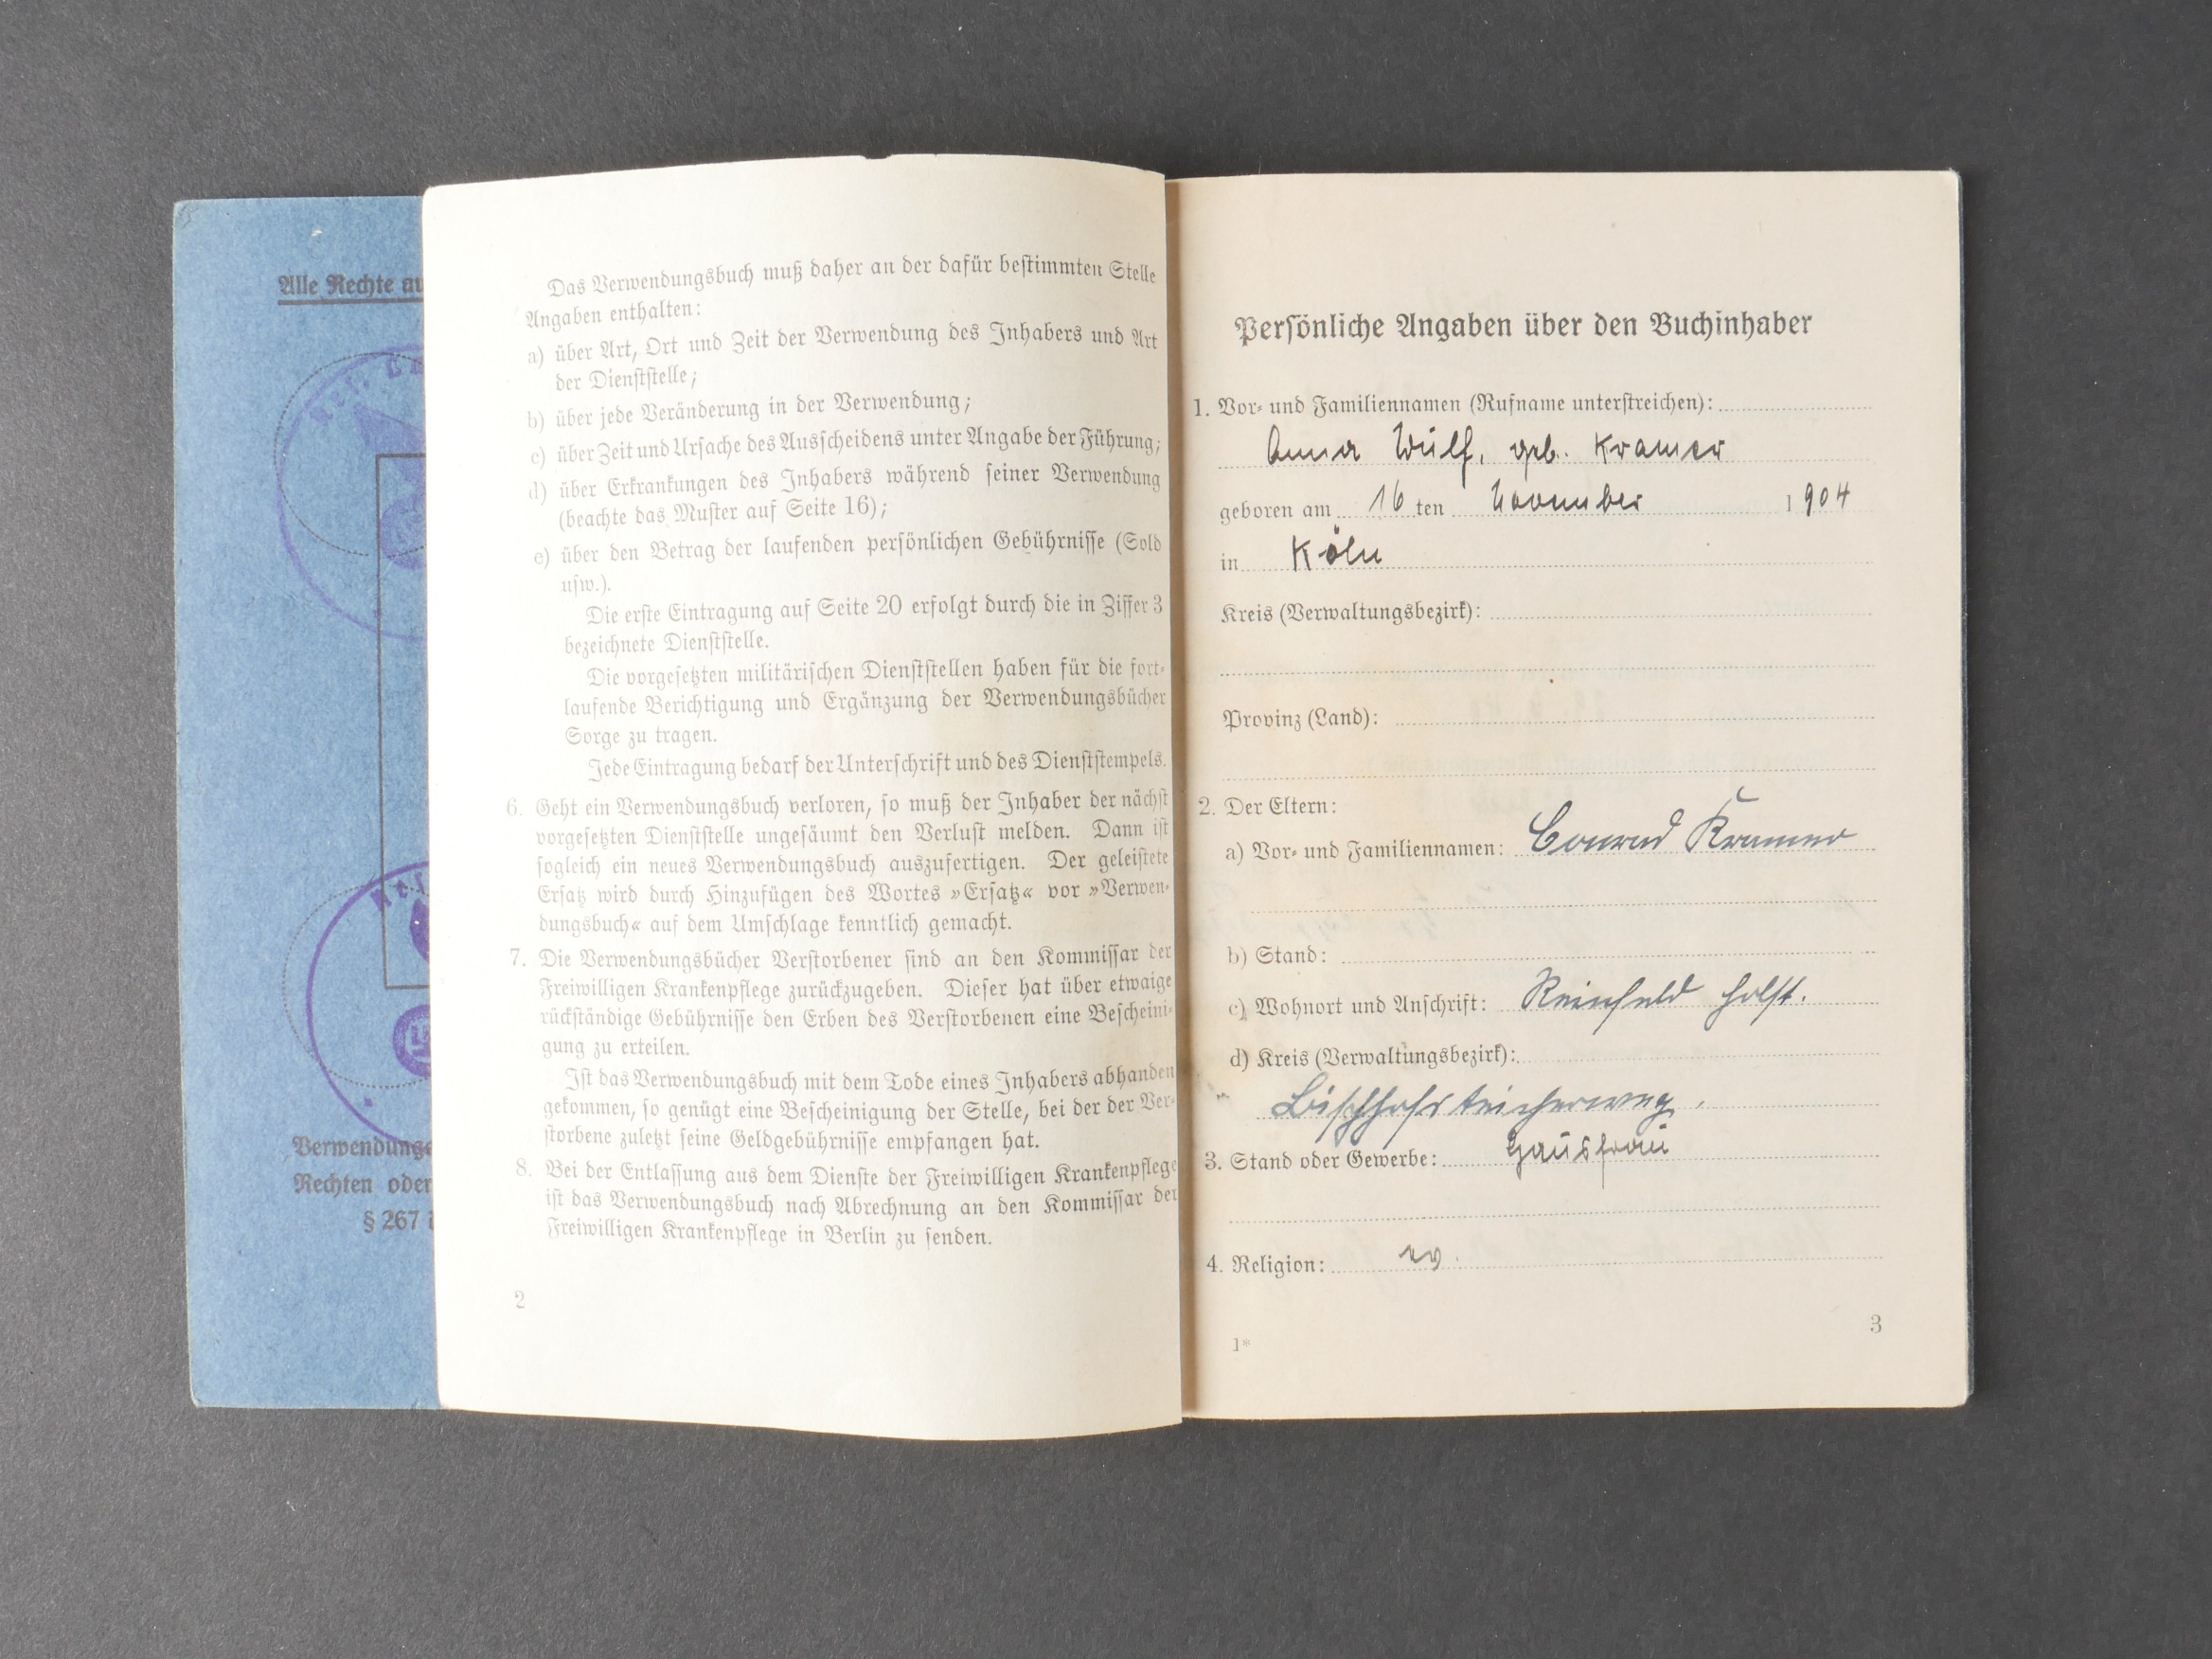 Alle Rechte au
Res. La
Res
Verwendungs
Rechten oder
§ 267 i
Das Verwendungsbuch muß daher an der dafür bestimmten Stelle
Angaben enthalten:
a) über Art, Ort und Zeit der Verwendung des Inhabers und Art
der Dienststelle;
b) über jede Veränderung in der Verwendung;
c) über Zeit und Ursache des Ausscheidens unter Angabe der Führung;
d) über Erkrankungen des Inhabers während seiner Verwendung
(beachte das Muster auf Seite 16);
e) über den Betrag der laufenden persönlichen Gebührnisse (Sold
usw.).
Die erste Eintragung auf Seite 20 erfolgt durch die in Ziffer 3
bezeichnete Dienststelle.
Die vorgesetzten militärischen Dienststellen haben für die fort-
laufende Berichtigung und Ergänzung der Verwendungsbücher
Sorge zu tragen.
Jede Eintragung bedarf der Unterschrift und des Dienststempels.
6. Geht ein Verwendungsbuch verloren, so muß der Inhaber der nächst
vorgesetzten Dienststelle ungesäumt den Verlust melden. Dann ist
sogleich ein neues Verwendungsbuch auszufertigen. Der geleistete
Ersatz wird durch Hinzufügen des Wortes »Ersatz« vor »Verwen-
dungsbuch« auf dem Umschlage kenntlich gemacht.
7. Die Verwendungsbücher Verstorbener sind an den Kommissar der
Freiwilligen Krankenpflege zurückzugeben. Dieser hat über etwaige
rückständige Gebührnisse den Erben des Verstorbenen eine Bescheini-
gung zu erteilen.
Ist das Verwendungsbuch mit dem Tode eines Inhabers abhanden
gekommen, so genügt eine Bescheinigung der Stelle, bei der der Ver-
storbene zuletzt seine Geldgebührnisse empfangen hat.
8. Bei der Entlassung aus dem Dienste der Freiwilligen Krankenpflege
ist das Verwendungsbuch nach Abrechnung an den Kommissar der
Freiwilligen Krankenpflege in Berlin zu senden.
2
Persönliche Angaben über den Buchinhaber
1. Vor- und Familiennamen (Rufname unterstreichen):
Anna Wulf, geb. Kramer
geboren am 16 ten November 1904
in Köln
Kreis (Verwaltungsbezirk):
Provinz (Land):
2. Der Eltern:
a) Vor- und Familiennamen: Conrad Kramer
b) Stand:
c) Wohnort und Anschrift: Reinfeld Holst.
d) Kreis (Verwaltungsbezirk):
Bischhofsteicherweg.
3. Stand oder Gewerbe: Hausfrau
4. Religion: ev.
3
1*